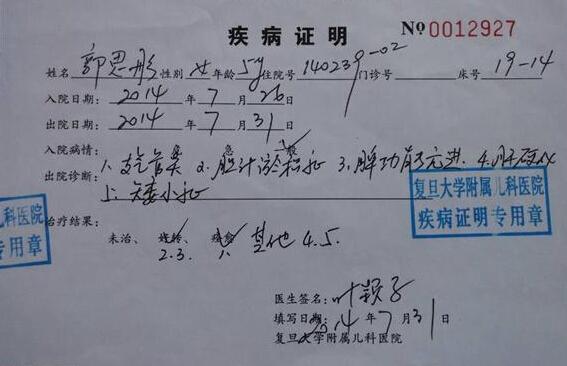 疾病证明
No 0012927
姓名 郭思彤 性别 女 年龄 5y 住院号 140239-02 门诊号 床号 19-14
入院日期: 2014 年 7 月 26 日
出院日期: 2014 年 7 月 31 日
入院病情: 危 急 一般
出院诊断: 1.支气管炎 2.胆汁淤积症 3.脾功能亢进 4.肝硬化
5.矮小症
复旦大学附属儿科医院
疾病证明专用章
儿科医院
专用章
治疗结果:
未治、好转、痊愈 其他 4.5.
2.3. 1.
医生签名: 叶颖子
填写日期: 2014 年 7 月 31 日
复旦大学附属儿科医院